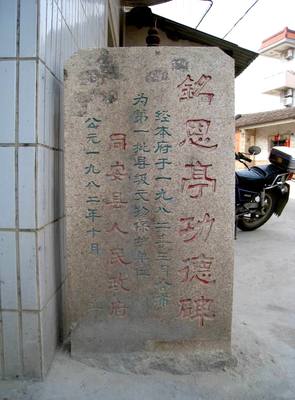 銘恩亭功德碑
经本府于一九八二年三月公布
为第一批县级文物保护单位
同安县人民政府
公元一九八二年十月